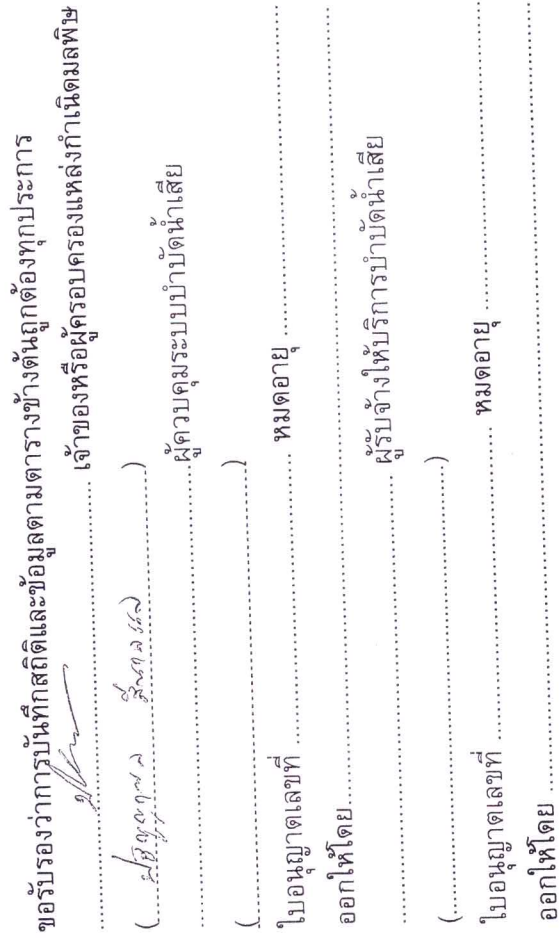 ขอรับรองว่าการบันทึกสถิติและข้อมูลตามตารางข้างต้นถูกต้องทุกประการ
............................................................ เจ้าของหรือผู้ครอบครองแหล่งกำเนิดมลพิษ
(............................................................)
............................................................ ผู้ควบคุมระบบบำบัดน้ำเสีย
(............................................................)
ใบอนุญาตเลขที่ ........................................ หมดอายุ ........................................
ออกให้โดย ............................................................
............................................................ ผู้รับจ้างให้บริการบำบัดน้ำเสีย
(............................................................)
ใบอนุญาตเลขที่ ........................................ หมดอายุ ........................................
ออกให้โดย ............................................................